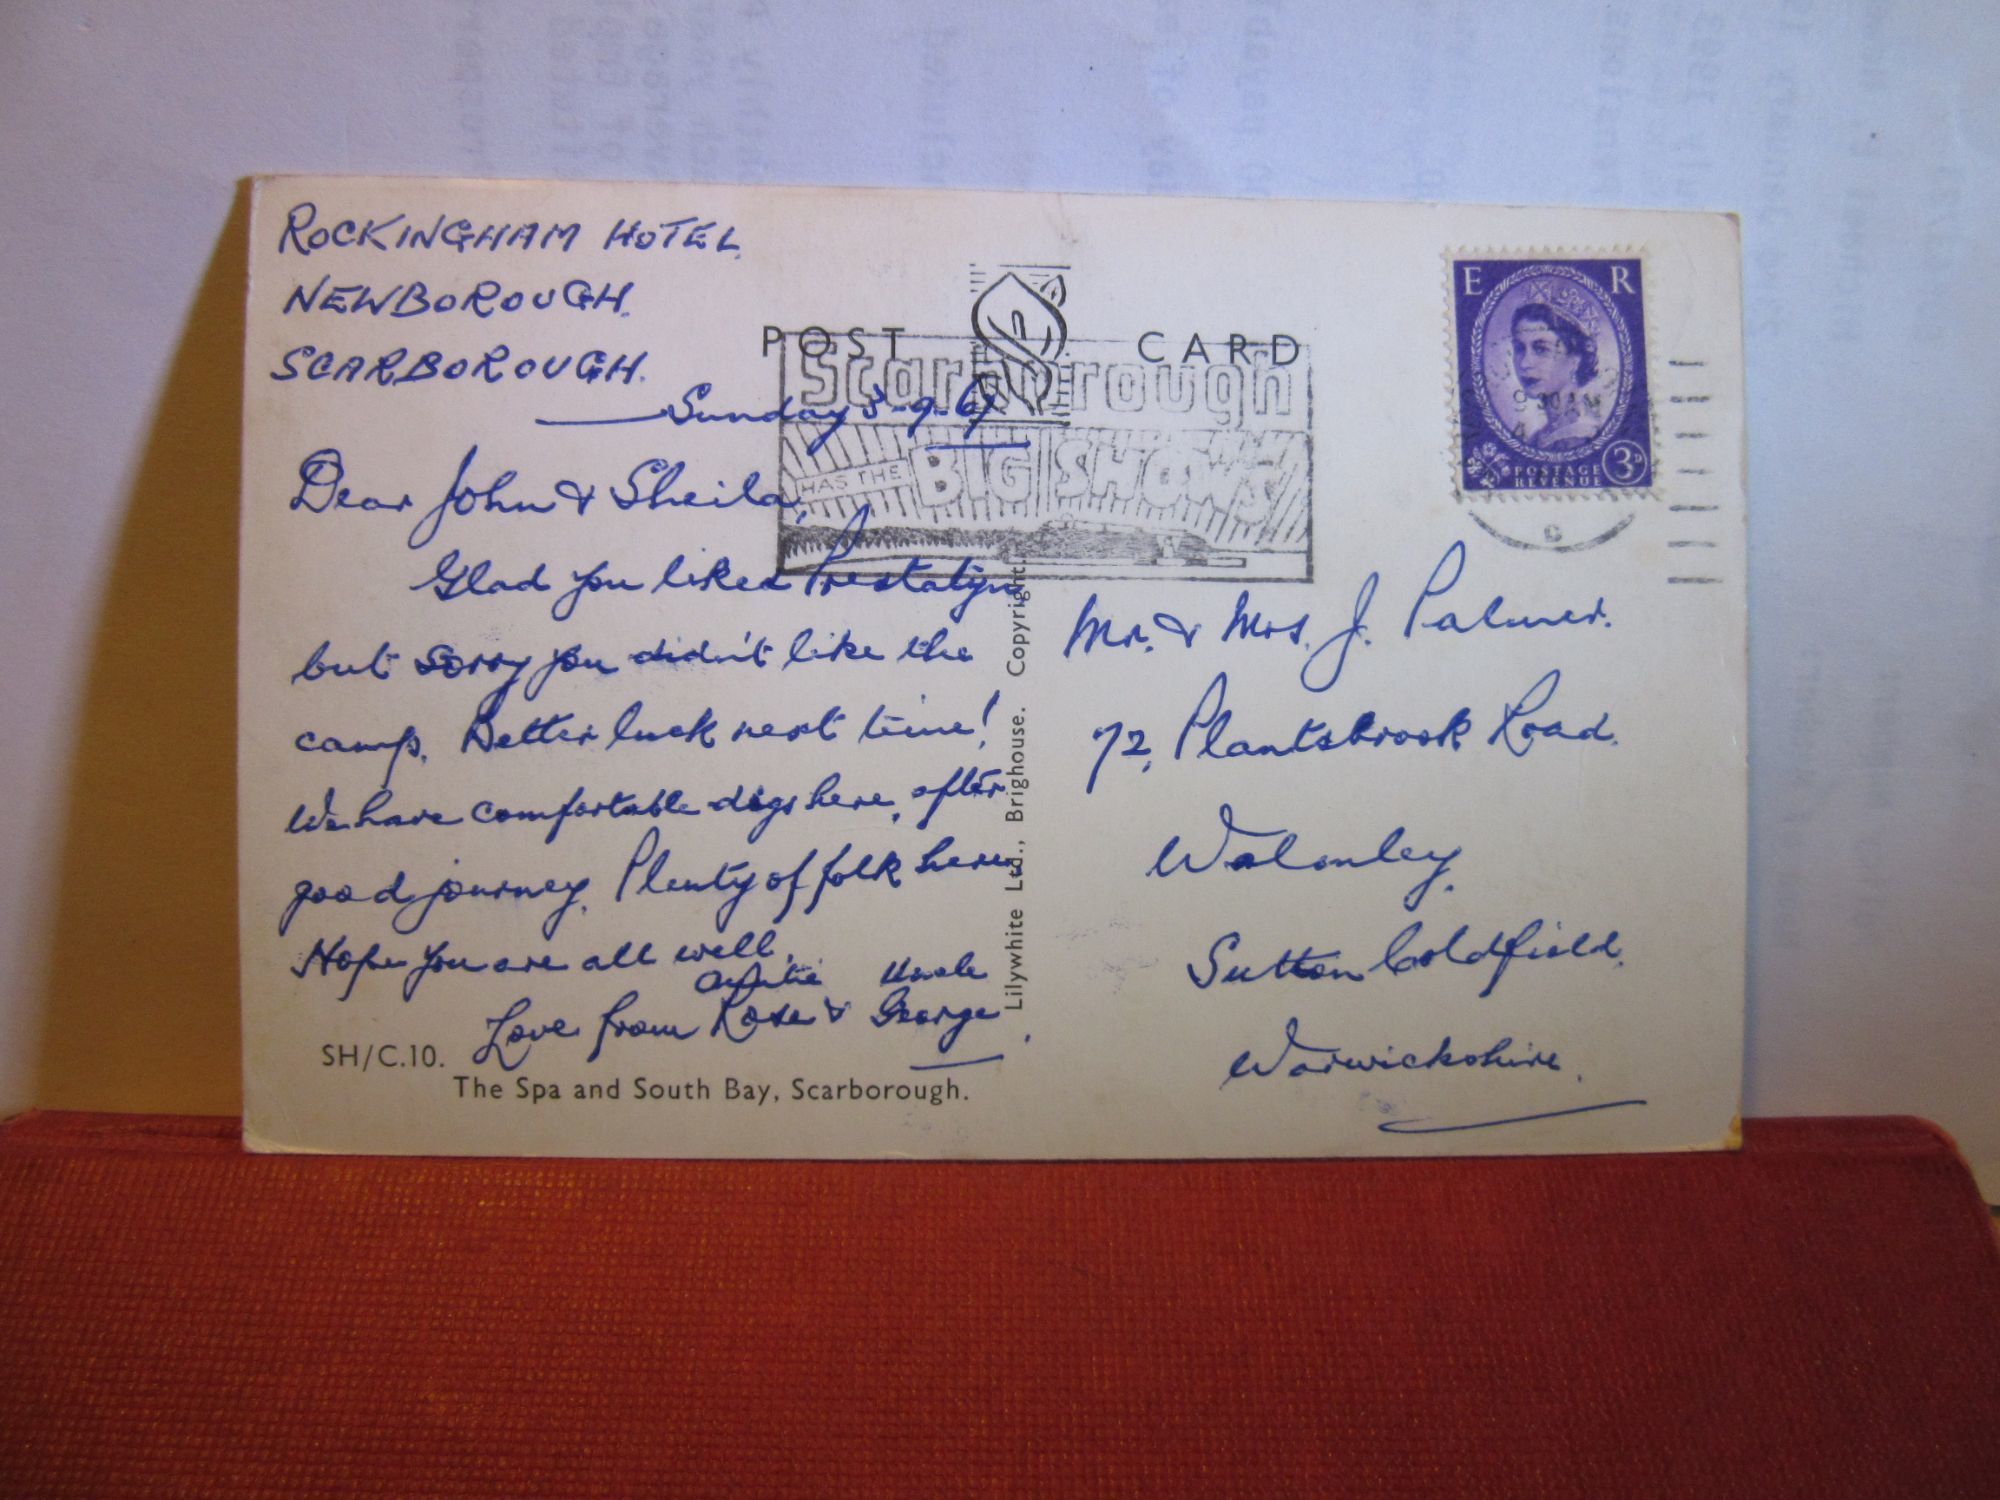 ROCKINGHAM HOTEL,
NEWBOROUGH.
SCARBOROUGH.
Sunday 3-9-67
Dear John & Sheila,
Glad you liked Prestatyn
but sorry you didn't like the
camp. Better luck next time!
We have comfortable digs here, after
good journey. Plenty of folk here
Hope you are all well.
Auntie Uncle
Love from Rose & George.
SH/C.10.
The Spa and South Bay, Scarborough.
POST CARD
Scarborough
HAS THE BIG SHOWS
Lilywhite Ltd., Brighouse. Copyright.
E R
9 30 AM
4
POSTAGE
REVENUE
3D
Mr. & Mrs. J. Palmer.
72, Plantsbrook Road.
Walmley.
Sutton Coldfield.
Warwickshire.